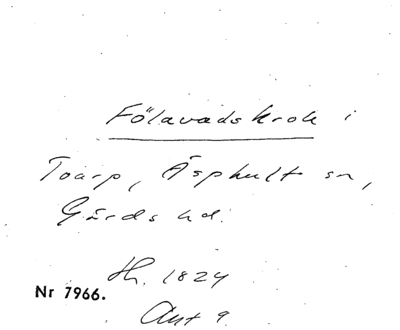 Fölavadskrok i
Toarp, Äsphult sn,
Gärds hd.
Hs. 1824
Nr 7966.
Akt 9